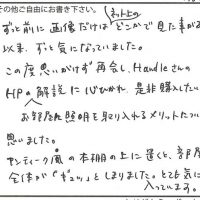 その他ご自由にお書き下さい。
ネット上の
ずっと前に画像だけはどこかで見た事が
以来、ずっと気になっていました。
この度思いがけず再会し、Handleさんの
HPの解説に心ひかれ是非購入したい
お部屋に照明を取り入れるメリットたっ
思いました。
アンティーク風の本棚の上に置くと、部屋
全体が"ギュッ"としまりました。とても気に
入っています。